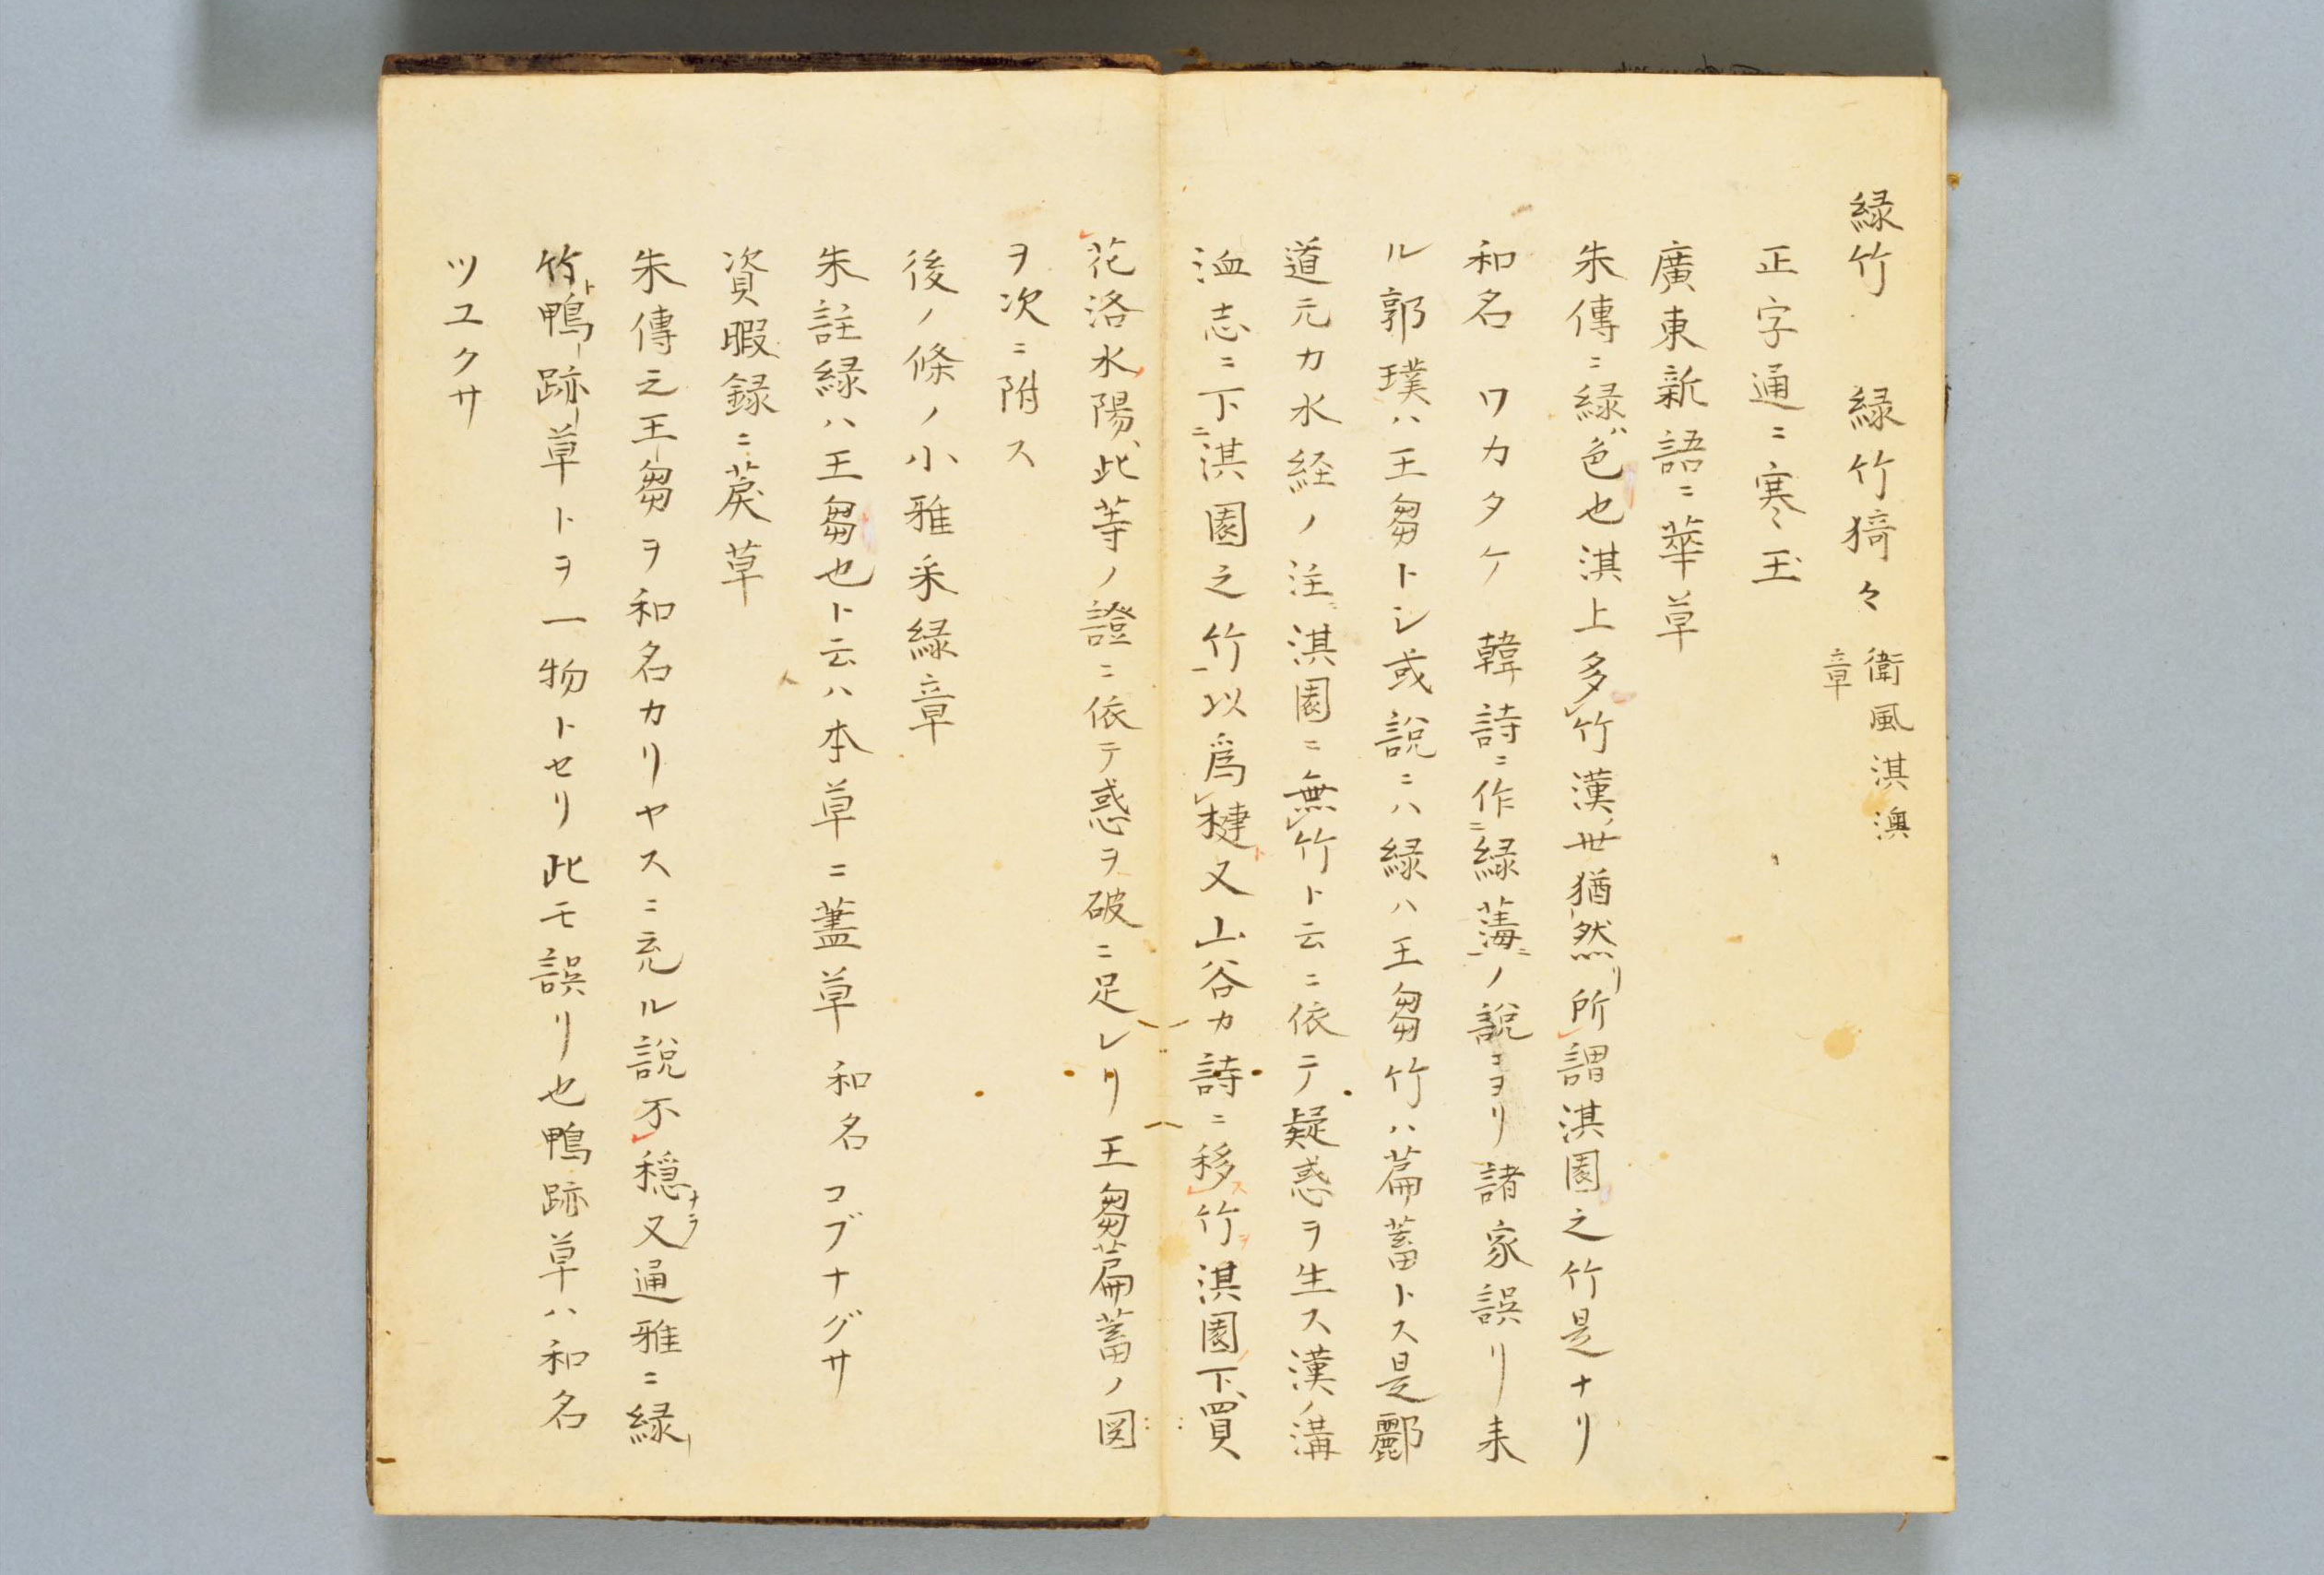 緑竹　緑竹猗々 衛風淇澳章
正字通ニ寒玉
廣東新語ニ華草
朱傳ニ緑ハ色也淇上多竹漢ノ世猶然リ所謂淇園之竹是ナリ
和名　ワカタケ　韓詩ニ作ニ緑薄一ノ説ヨリ諸家誤リ来
ル郭璞ハ王芻トシ或説ニハ緑ハ王芻竹ハ萹蓄トス是酈
道元カ水経ノ注淇園ニ無竹ト云ニ依テ疑惑ヲ生ス漢ノ溝
洫志ニ下ニ淇園之竹一以爲楗ト又山谷カ詩ニ移ス竹ヲ淇園下買
花洛水陽此等ノ證ニ依テ惑ヲ破ニ足レリ王芻萹蓄ノ図
ヲ次ニ附ス
後ノ條ノ小雅采緑章
朱註緑ハ王芻也ト云ハ本草ニ藎草　和名コブナグサ
資暇録ニ菉草
朱傳之王芻ヲ和名カリヤスニ充ル説不穏ナラ又通雅ニ緑
竹ト鴨跡草トヲ一物トセリ此モ誤リ也鴨跡草ハ和名
ツユクサ